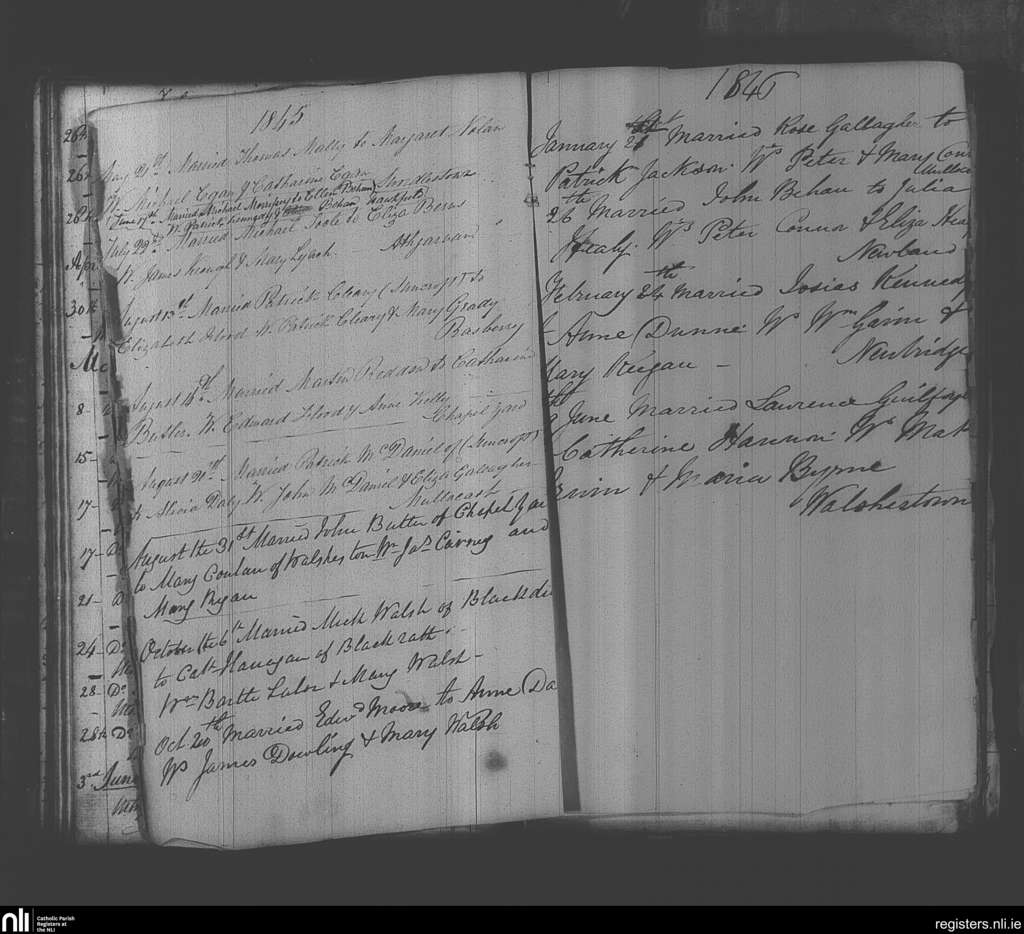 1845
May 21st Married Thomas Mally to Margaret Nolan
W. Michael Egan & Catharine Egan
June 17th Married Michael Morrissy to Ellen Behan
W. Patrick Kennedy & Behan
July 29th Married Michael Toole to Eliza Berns
W. James Keough & Mary Lynch. Athgarvan
August 13th Married Patrick Cleary (Suncroft) to
Elizabeth Flood W. Patrick Cleary & Mary Grady
Rasberry
August 14th Married Martin Reddad to Catharine
Butler. W. Edward Flood & Anne Kelly
Chapel Yard
August 21st Married Patrick McDaniel of (Suncroft)
to Alicia Daly W. John McDaniel & Eliza Gallagher
Mullacash
August the 31st Married John Butler of Chapel Yard
to Mary Conlan of Walshestown Ws Jas Cavney and
Mary Ryan
October the 6th Married Mick Walsh of
to Cath Flanagan of Blackrath.
Ws Bartle Lalor & Mary Walsh -
Oct 20th Married Edwd Moore to Anne Da
Ws James Dowling & Mary Walsh
26th
26th
28th
Apr
30th
8 -
15 -
17 - D
17 - Do
21 - D
24 - Do
28 - Do
28th Do
3rd June
1846
January 21st Married Rose Gallagher to
Patrick Jackson. Ws Peter & Mary
26th Married John Behan to Julia
Healy. Ws Peter Connor & Eliza
Newland
February 24th married Josias Kennedy
to Anne Dunne. Ws Wm Gavin &
Mary Keegan - Newbridge
June Married Lawrence
Catherine Hannon. Ws
& Maria Byrne
Walshestown
nli
Catholic Parish
Registers at
the NLI
registers.nli.ie